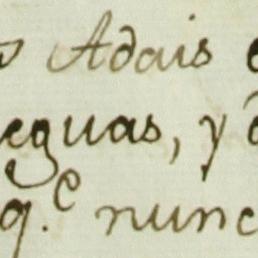 Adais
leguas, y
q.e nunc